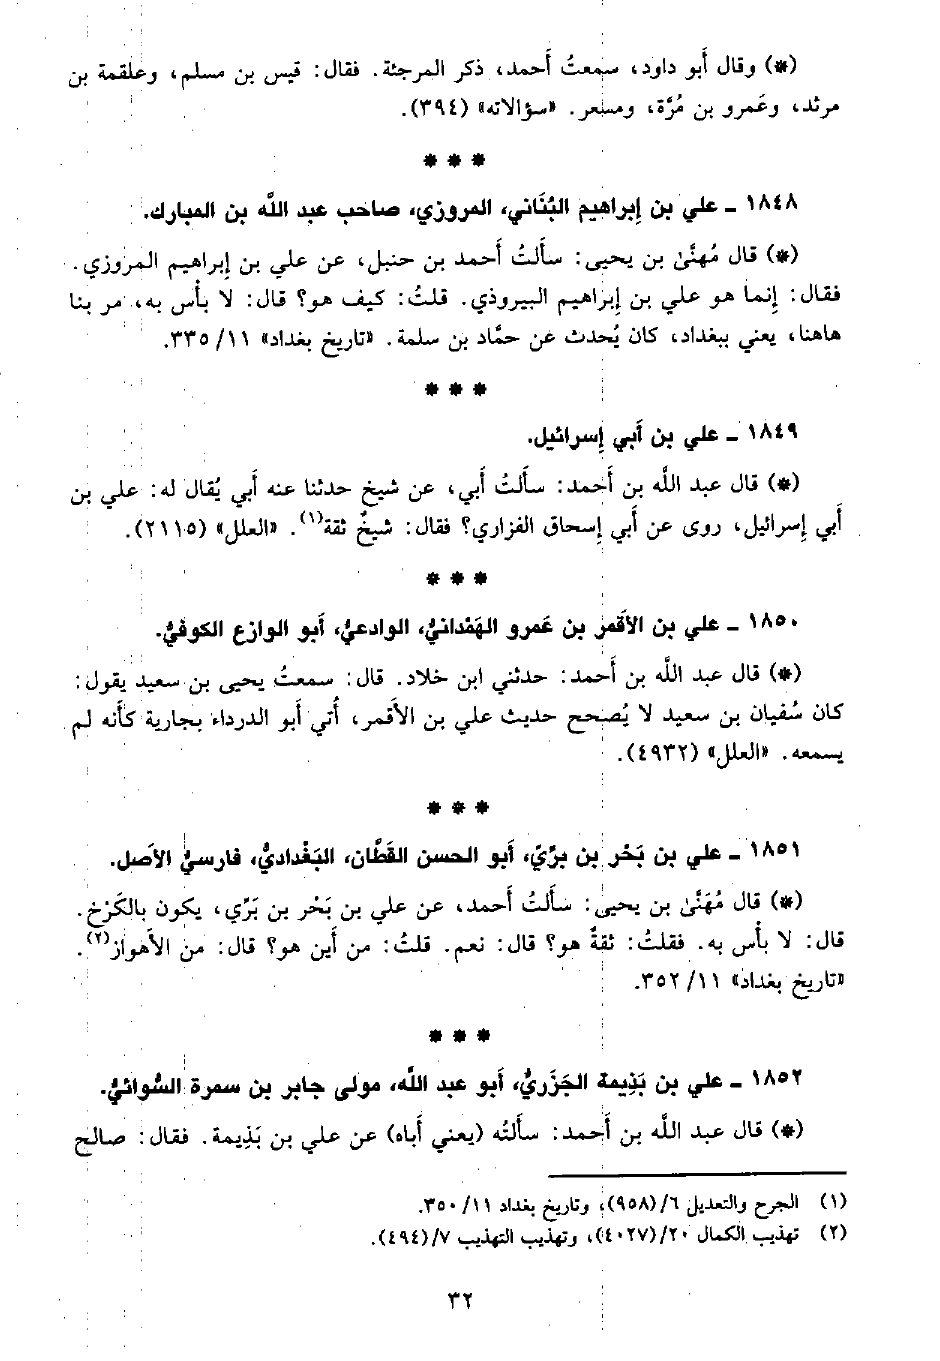 (*) وقال أبو داود، سمعتُ أحمد، ذكر المرجئة. فقال: قيس بن مسلم، وعلقمة بن
مرثد، وعَمرو بن مُرَّة، ومسعر. «سؤالاته» (٣٩٤).
* * *
١٨٤٨ ـ علي بن إبراهيم البُنَاني، المروزي، صاحب عبد اللَّه بن المبارك.
(*) قال مُهنَّىٰ بن يحيى: سألتُ أحمد بن حنبل، عن علي بن إبراهيم المروزي.
فقال: إنما هو علي بن إبراهيم البيروذي. قلتُ: كيف هو؟ قال: لا بأس به، مر بنا
هاهنا، يعني ببغداد، كان يُحدث عن حمَّاد بن سلمة. «تاريخ بغداد» ١١/ ٣٣٥.
* * *
١٨٤٩ ـ علي بن أبي إسرائيل.
(*) قال عبد اللَّه بن أحمد: سألتُ أبي، عن شيخ حدثنا عنه أبي يُقال له: علي بن
أبي إسرائيل، روى عن أبي إسحاق الفزاري؟ فقال: شيخٌ ثقة(١). «العلل» (٢١١٥).
* * *
١٨٥٠ ـ علي بن الأقمر بن عَمرو الهَمْدانيُّ، الوادعيُّ، أبو الوازع الكوفيُّ.
(*) قال عبد اللَّه بن أحمد: حدثني ابن خلاد. قال: سمعتُ يحيى بن سعيد يقول:
كان سُفيان بن سعيد لا يُصحح حديث علي بن الأقمر، أُتي أبو الدرداء بجارية كأنه لم
يسمعه. «العلل» (٤٩٣٢).
* * *
١٨٥١ ـ علي بن بَحْر بن برِّي، أبو الحسن القَطَّان، البَغْداديُّ، فارسيُّ الأصل.
(*) قال مُهَنَّىٰ بن يحيى: سَألتُ أحمد، عن علي بن بَحْر بن بَرِّي، يكون بالكَرْخ.
قال: لا بأس به. فقلتُ: ثقةٌ هو؟ قال: نعم. قلتُ: من أين هو؟ قال: من الأهواز(٢).
«تاريخ بغداد» ١١/ ٣٥٢.
* * *
١٨٥٢ ـ علي بن بَذِيمة الجَزَريُّ، أبو عبد اللَّه، مولى جابر بن سمرة السُّوائيُّ.
(*) قال عبد اللَّه بن أحمد: سألتُه (يعني أباه) عن علي بن بَذِيمة. فقال: صالح
(١) الجرح والتعديل ٦/(٩٥٨)، وتاريخ بغداد ١١/ ٣٥٠.
(٢) تهذيب الكمال ٢٠/(٤٠٢٧)، وتهذيب التهذيب ٧/(٤٩٤).
٣٢